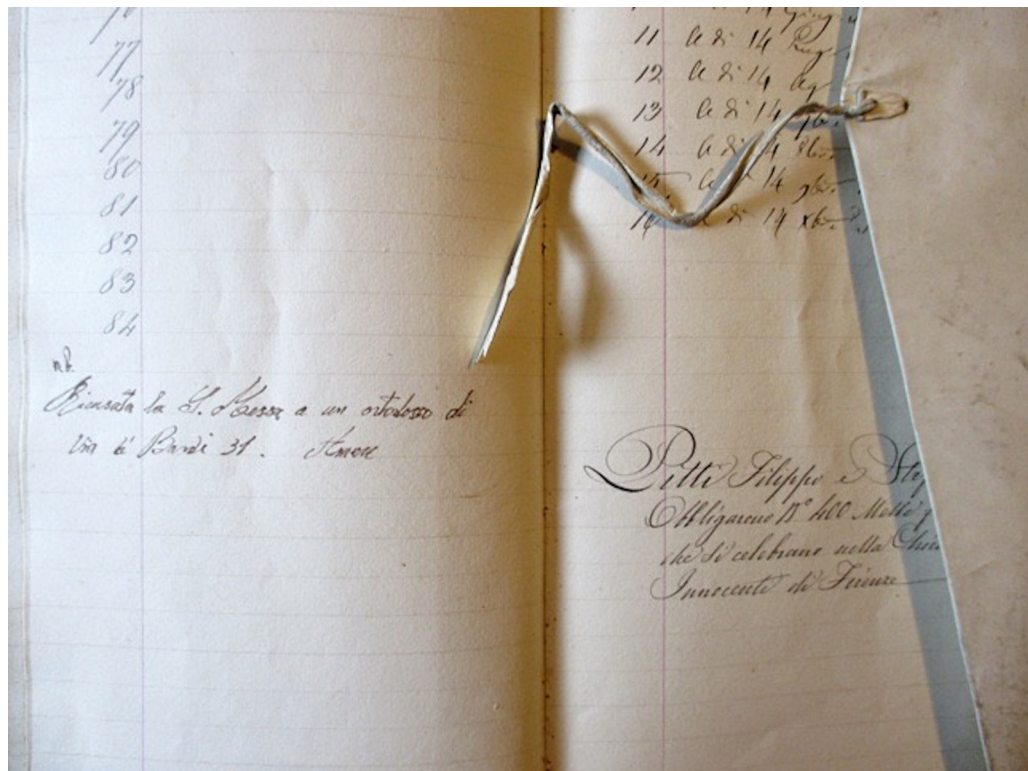 77
78
79
80
81
82
83
84
n.b.
Ricusata la S. Messa a un ortodosso di
Via de Bardi 31. Amore
11 A di 14 Lug
12 A di 14 Ag
13 A di 14 7b
14 A di 14 8b
15 A di 14 9b
16 A di 14 Xb
Pitti Filippo e Ste
Obbligarono N° 400 Messe
che si celebrano nella Chie
Innocenti di Firenze